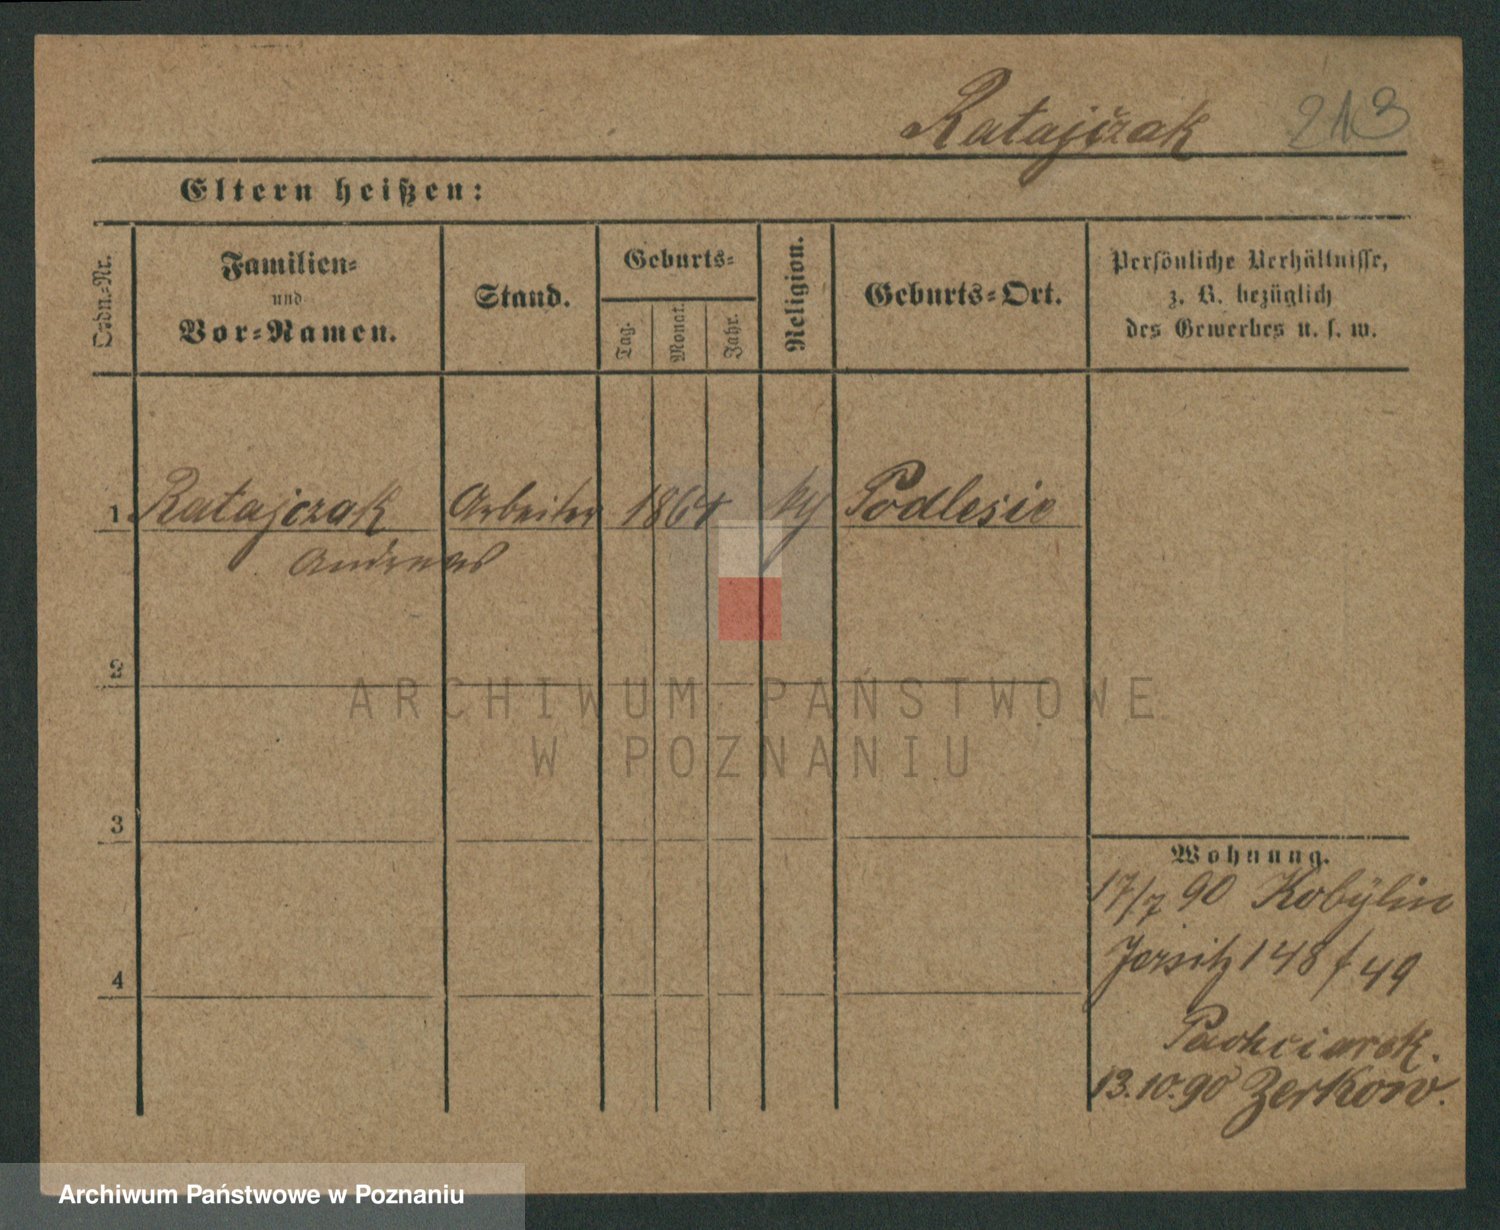 Ratajczak 213
Eltern heißen:
Ordn.-Nr.
Familien-
und
Vor-Namen.
Stand.
Geburts-
Tag.
Monat.
Jahr.
Religion.
Geburts-Ort.
Persönliche Verhältnisse,
z. B. bezüglich
des Gewerbes u. s. w.
1 Ratajczak Arbeiter 1864 Podlesie
Andreas
2
3
4
ARCHIWUM PAŃSTWOWE
W POZNANIU
Wohnung.
17/7 90 Kobylin
Jersitz 148 f 49
Pachciarek.
13.10.90 Zerkow.
Archiwum Państwowe w Poznaniu